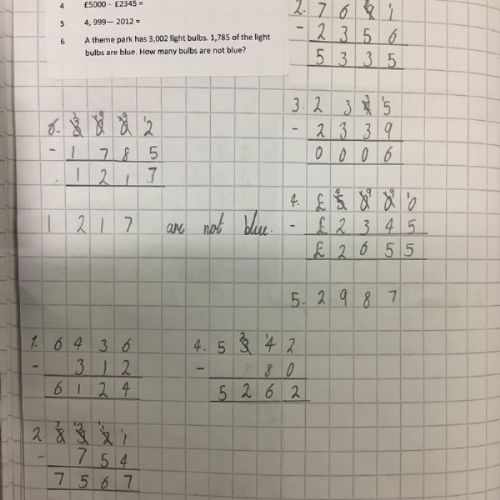 4 £5000 - £2345 =
5 4, 999— 2012 =
6 A theme park has 3,002 light bulbs. 1,785 of the light
bulbs are blue. How many bulbs are not blue?
2. 7 6 9 1
- 2 3 5 6
5 3 3 5
3. 2 3 4 5
- 2 3 3 9
0 0 0 6
6. 3 0 0 2
- 1 7 8 5
1 2 1 7
1 2 1 7 are not blue.
4. £ 5 0 0 0
- £ 2 3 4 5
£ 2 6 5 5
5. 2 9 8 7
1. 6 4 3 6
- 3 1 2
6 1 2 4
4. 5 3 4 2
- 8 0
5 2 6 2
2. 8 3 2 1
- 7 5 4
7 5 6 7